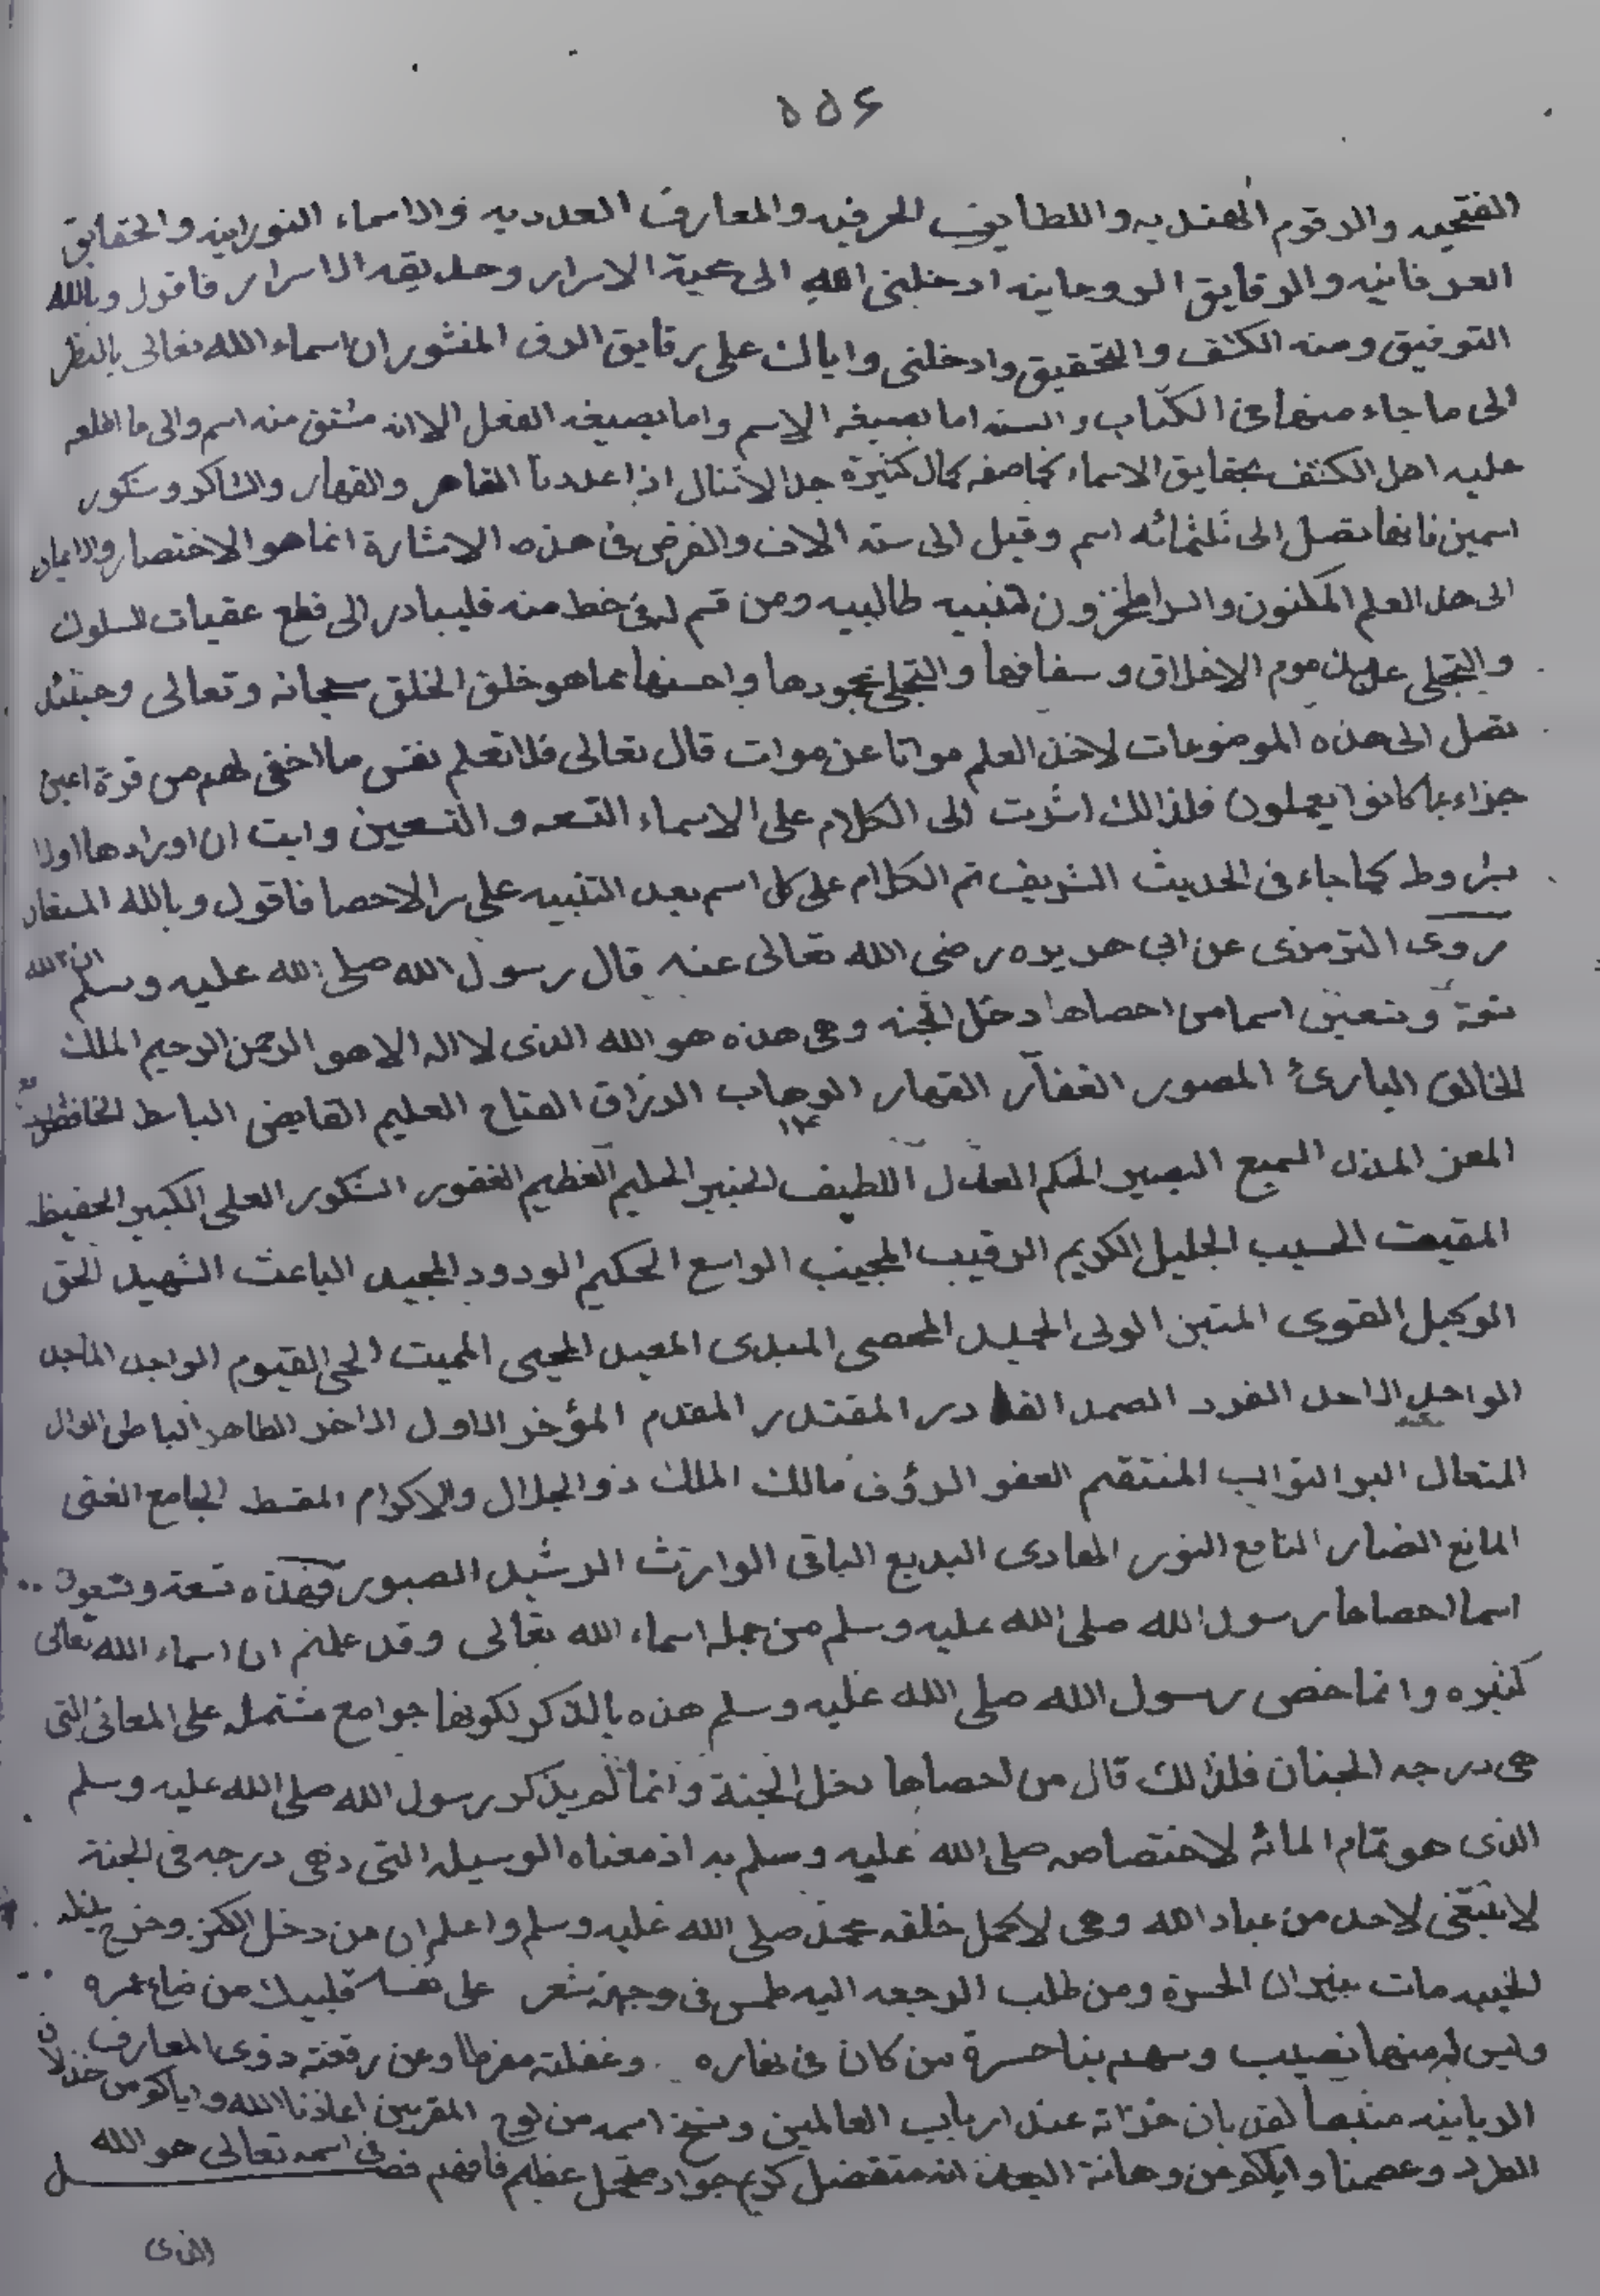 ٥٥٤
الفتحيه والرقوم الهنديه واللطايف الحرفيه والمعارف العدديه والاسماء النورانيه والحقايق
العرفانيه والرقايق الروحانيه ادخلنى الله الى الاسرار وحديقه الاسرار فاقول وبالله
التوفيق ومنه الكشف والتحقيق وادخلنى واياك على رقايق الرق المنشور ان اسماء الله تعالى بالنظر
الى ما جاء منها فى الكتاب والسنه اما بصيغه الاسم واما بصيغه الفعل الا انه مشتق منه اسم والى ما اطلعه
عليه اهل الكشف بحقايق الاسماء كثيرة جدا لاتنال اذا عددنا القاهر والقهار والشاكر وشكور
اسمين فانها تصل الى ثلثمائه اسم وقيل الى سته الاف والغرض فى هذه الاشارة انما هو الاختصار والايماء
الى هذا العلم المكنون والسر المخزون لتنبيه طالبيه ومن قسم له فى حظ منه فليبادر الى قطع عقبات السلوك
والتخلى عن مذموم الاخلاق وسفاسفها والتجلى بمحمودها واحسنها مما هو خلق الخلق سبحانه وتعالى وحينئذ
تصل الى هذه الموضوعات لاخذ العلم مواتا عن موات قال تعالى فلا تعلم نفس ما اخفى لهم من قرة اعين
جزاء بما كانوا يعملون فلذالك اشرت الى الكلام على الاسماء التسعه والتسعين وايت ان اوردها اولا
بشروط كما جاء فى الحديث الشريف ثم الكلام على كل اسم بعد التنبيه على سر الاحصا فاقول وبالله المستعان
روى الترمذى عن ابى هريره رضى الله تعالى عنه قال رسول الله صلى الله عليه وسلم ان لله
تسعة وتسعين اسما من احصاها دخل الجنه وهى هذه هو الله الذى لا اله الا هو الرحمن الرحيم الملك
الخالق البارئ المصور الغفار القهار الوهاب الرزاق الفتاح العليم القابض الباسط الخافض
المعز المذل السميع البصير الحكم العدل اللطيف الخبير الحليم العظيم الغفور الشكور العلى الكبير الحفيظ
المقيت الحسيب الجليل الكريم الرقيب المجيب الواسع الحكيم الودود المجيد الباعث الشهيد الحق
الوكيل القوى المتين الولى الحميد المحصى المبدى المعيد المحيى المميت الحى القيوم الواجد الماجد
الواحد الاحد الفرد الصمد القادر المقتدر المقدم المؤخر الاول الاخر الظاهر الباطن الوال
المتعال البر التواب المنتقم العفو الرؤف مالك الملك ذو الجلال والاكرام المقسط الجامع الغنى
المانع الضار النافع النور الهادى البديع الباقى الوارث الرشيد الصبور فهذه تسعة وتسعون
اسما احصاها رسول الله صلى الله عليه وسلم من جمله اسماء الله تعالى وقد علمتم ان اسماء الله تعالى
كثيره وانما خص رسول الله صلى الله عليه وسلم هذه بالذكر لكونها جوامع مشتمله على المعانى التى
هى درجه الجنان فلذالك قال من احصاها دخل الجنة وانما لم يذكر رسول الله صلى الله عليه وسلم
الذى هو تمام المائه لاختصاصه صلى الله عليه وسلم به اذ معناه الوسيله التى هى درجه فى الجنة
لا تنبغى لاحد من عباد الله وهى لاكمل خلقه محمد صلى الله عليه وسلم واعلم ان من دخل الكنز وخرج
الخيبه مات بنيران الحسرة ومن طلب الرجعه اليه طمس فى وجهه شعر على نفسه فليبك من ضاع عمره
وليس له منها نصيب وسهم يناحسرة من كان فى وغفلته مفرطا وعن رفقته ذوى المعارف
الربانيه مثبطا لقد بان عند ارباب العالمين ونسخ اسمه من لوح المقربين اعاذنا الله واياكم من خذلان
الطرد وعصمنا واياكم من وهانة البعد انه متفضل كريم جواد عظيم فافهم فصل فى اسمه تعالى هو الله
الذى